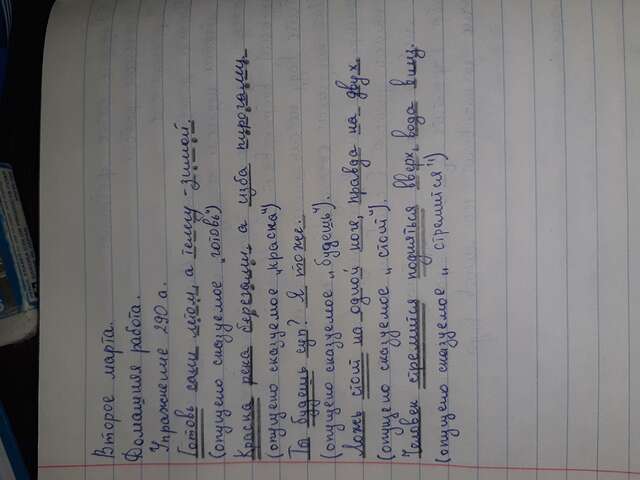 Второе марта.
Домашняя работа.
Упражнение 290 а.
Готовь сани летом, а телегу - зимой
(опущено сказуемое "готовь")
Краска река берегами, а изба пирогами.
(опущено сказуемое "краска")
Ты будешь суп? Я тоже.
(опущено сказуемое "будешь").
Ложь стоит на одной ноге, правда на двух.
(опущено сказуемое "стоит").
Человек стремится подняться вверх, вода вниз.
(опущено сказуемое "стремится")